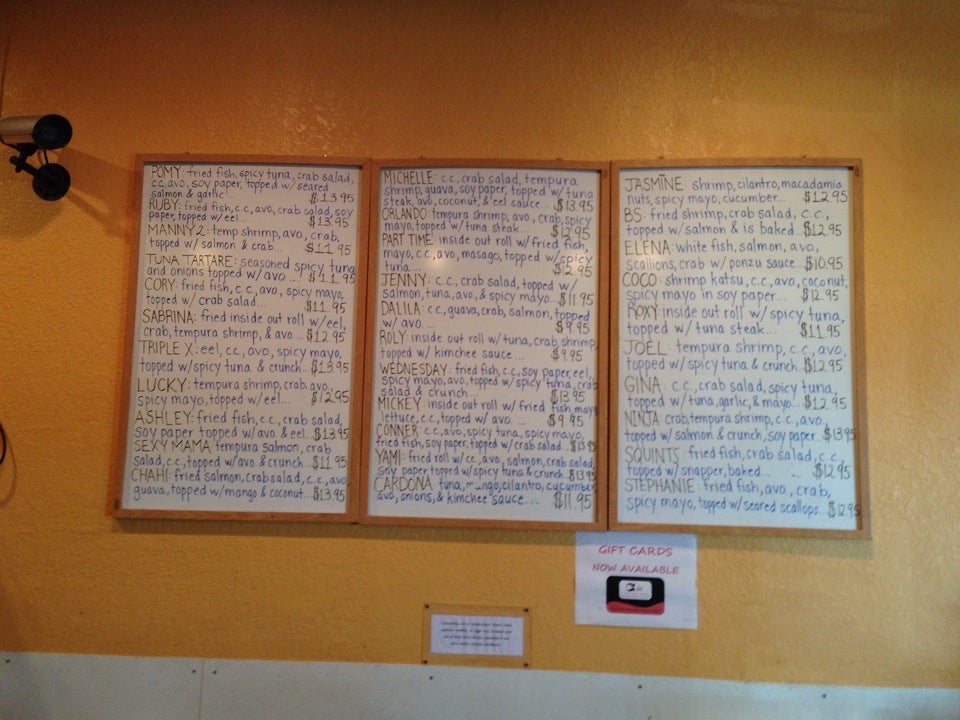 POMY: fried fish, spicy tuna, crab salad,
c.c, avo, soy paper, topped w/ seared
salmon & garlic $13.95
RUBY: fried fish, c.c, avo, crab salad, soy
paper, topped w/ eel... $13.95
MANNY 2: temp shrimp, avo, crab,
topped w/ salmon & crab... $11.95
TUNA TARTARE: seasoned spicy tuna
and onions topped w/ avo... $11.95
CORY: fried fish, c.c, avo, spicy mayo,
topped w/ crab salad... $11.95
SABRINA: fried inside out roll w/ eel,
crab, tempura shrimp, & avo... $12.95
TRIPLE X: eel, cc, avo, spicy mayo,
topped w/ spicy tuna & crunch... $13.95
LUCKY: tempura shrimp, crab, avo,
spicy mayo, topped w/ eel... $12.95
ASHLEY: fried fish, c.c, crab salad,
soy paper topped w/ avo & eel.. $13.95
SEXY MAMA tempura salmon, crab
salad, c.c, topped w/ avo & crunch... $11.95
CHAHI: fried salmon, crab salad, c.c, avo,
guava, topped w/ mango & coconut... $13.95
MICHELLE: c.c, crab salad, tempura
shrimp, guava, soy paper, topped w/ tuna
steak, avo, coconut, & eel sauce... $13.95
ORLANDO: tempura shrimp, avo, crab, spicy
mayo, topped w/ tuna steak... $12.95
PART TIME: inside out roll w/ fried fish,
mayo, c.c, avo, masago, topped w/ spicy
tuna... $12.95
JENNY: c.c, crab salad, topped w/
salmon, tuna, avo, & spicy mayo... $11.95
DALILA: c.c, guava, crab, salmon, topped
w/ avo... $9.95
ROLY: inside out roll w/ tuna, crab, shrimp
topped w/ kimchee sauce... $9.95
WEDNESDAY: fried fish, c.c, soy paper, eel,
spicy mayo, avo, topped w/ spicy tuna, crab
salad & crunch... $13.95
MICKEY: inside out roll w/ fried fish, mayo
lettuce, c.c, topped w/ avo... $9.95
CONNER: c.c, avo, spicy tuna, spicy mayo,
fried fish, soy paper, topped w/ crab salad... $13.95
YAMI: fried roll w/ cc, avo, salmon, crab salad,
soy paper, topped w/ spicy tuna & crunch $13.95
CARDONA tuna, mango, cilantro, cucumber
avo, onions, & kimchee sauce... $11.95
JASMINE shrimp, cilantro, macadamia
nuts, spicy mayo, cucumber... $12.95
BS: fried shrimp, crab salad, c.c.,
topped w/ salmon & is baked.. $12.95
ELENA: white fish, salmon, avo,
scallions, crab w/ ponzu sauce... $10.95
COCO: shrimp katsu, c.c, avo, coconut,
spicy mayo in soy paper... $12.95
ROXY: inside out roll w/ spicy tuna,
topped w/ tuna steak... $11.95
JOEL: tempura shrimp, c.c, avo,
topped w/ spicy tuna & crunch.. $12.95
GINA: c.c, crab salad, spicy tuna,
topped w/ tuna, garlic, & mayo... $12.95
NINJA: crab, tempura shrimp, c.c, avo,
topped w/ salmon & crunch, soy paper $13.95
SQUINTS: fried fish, crab salad, c.c.,
topped w/ snapper, baked... $12.95
STEPHANIE: fried fish, avo, crab,
spicy mayo, topped w/ seared scallops... $12.95
GIFT CARDS
NOW AVAILABLE